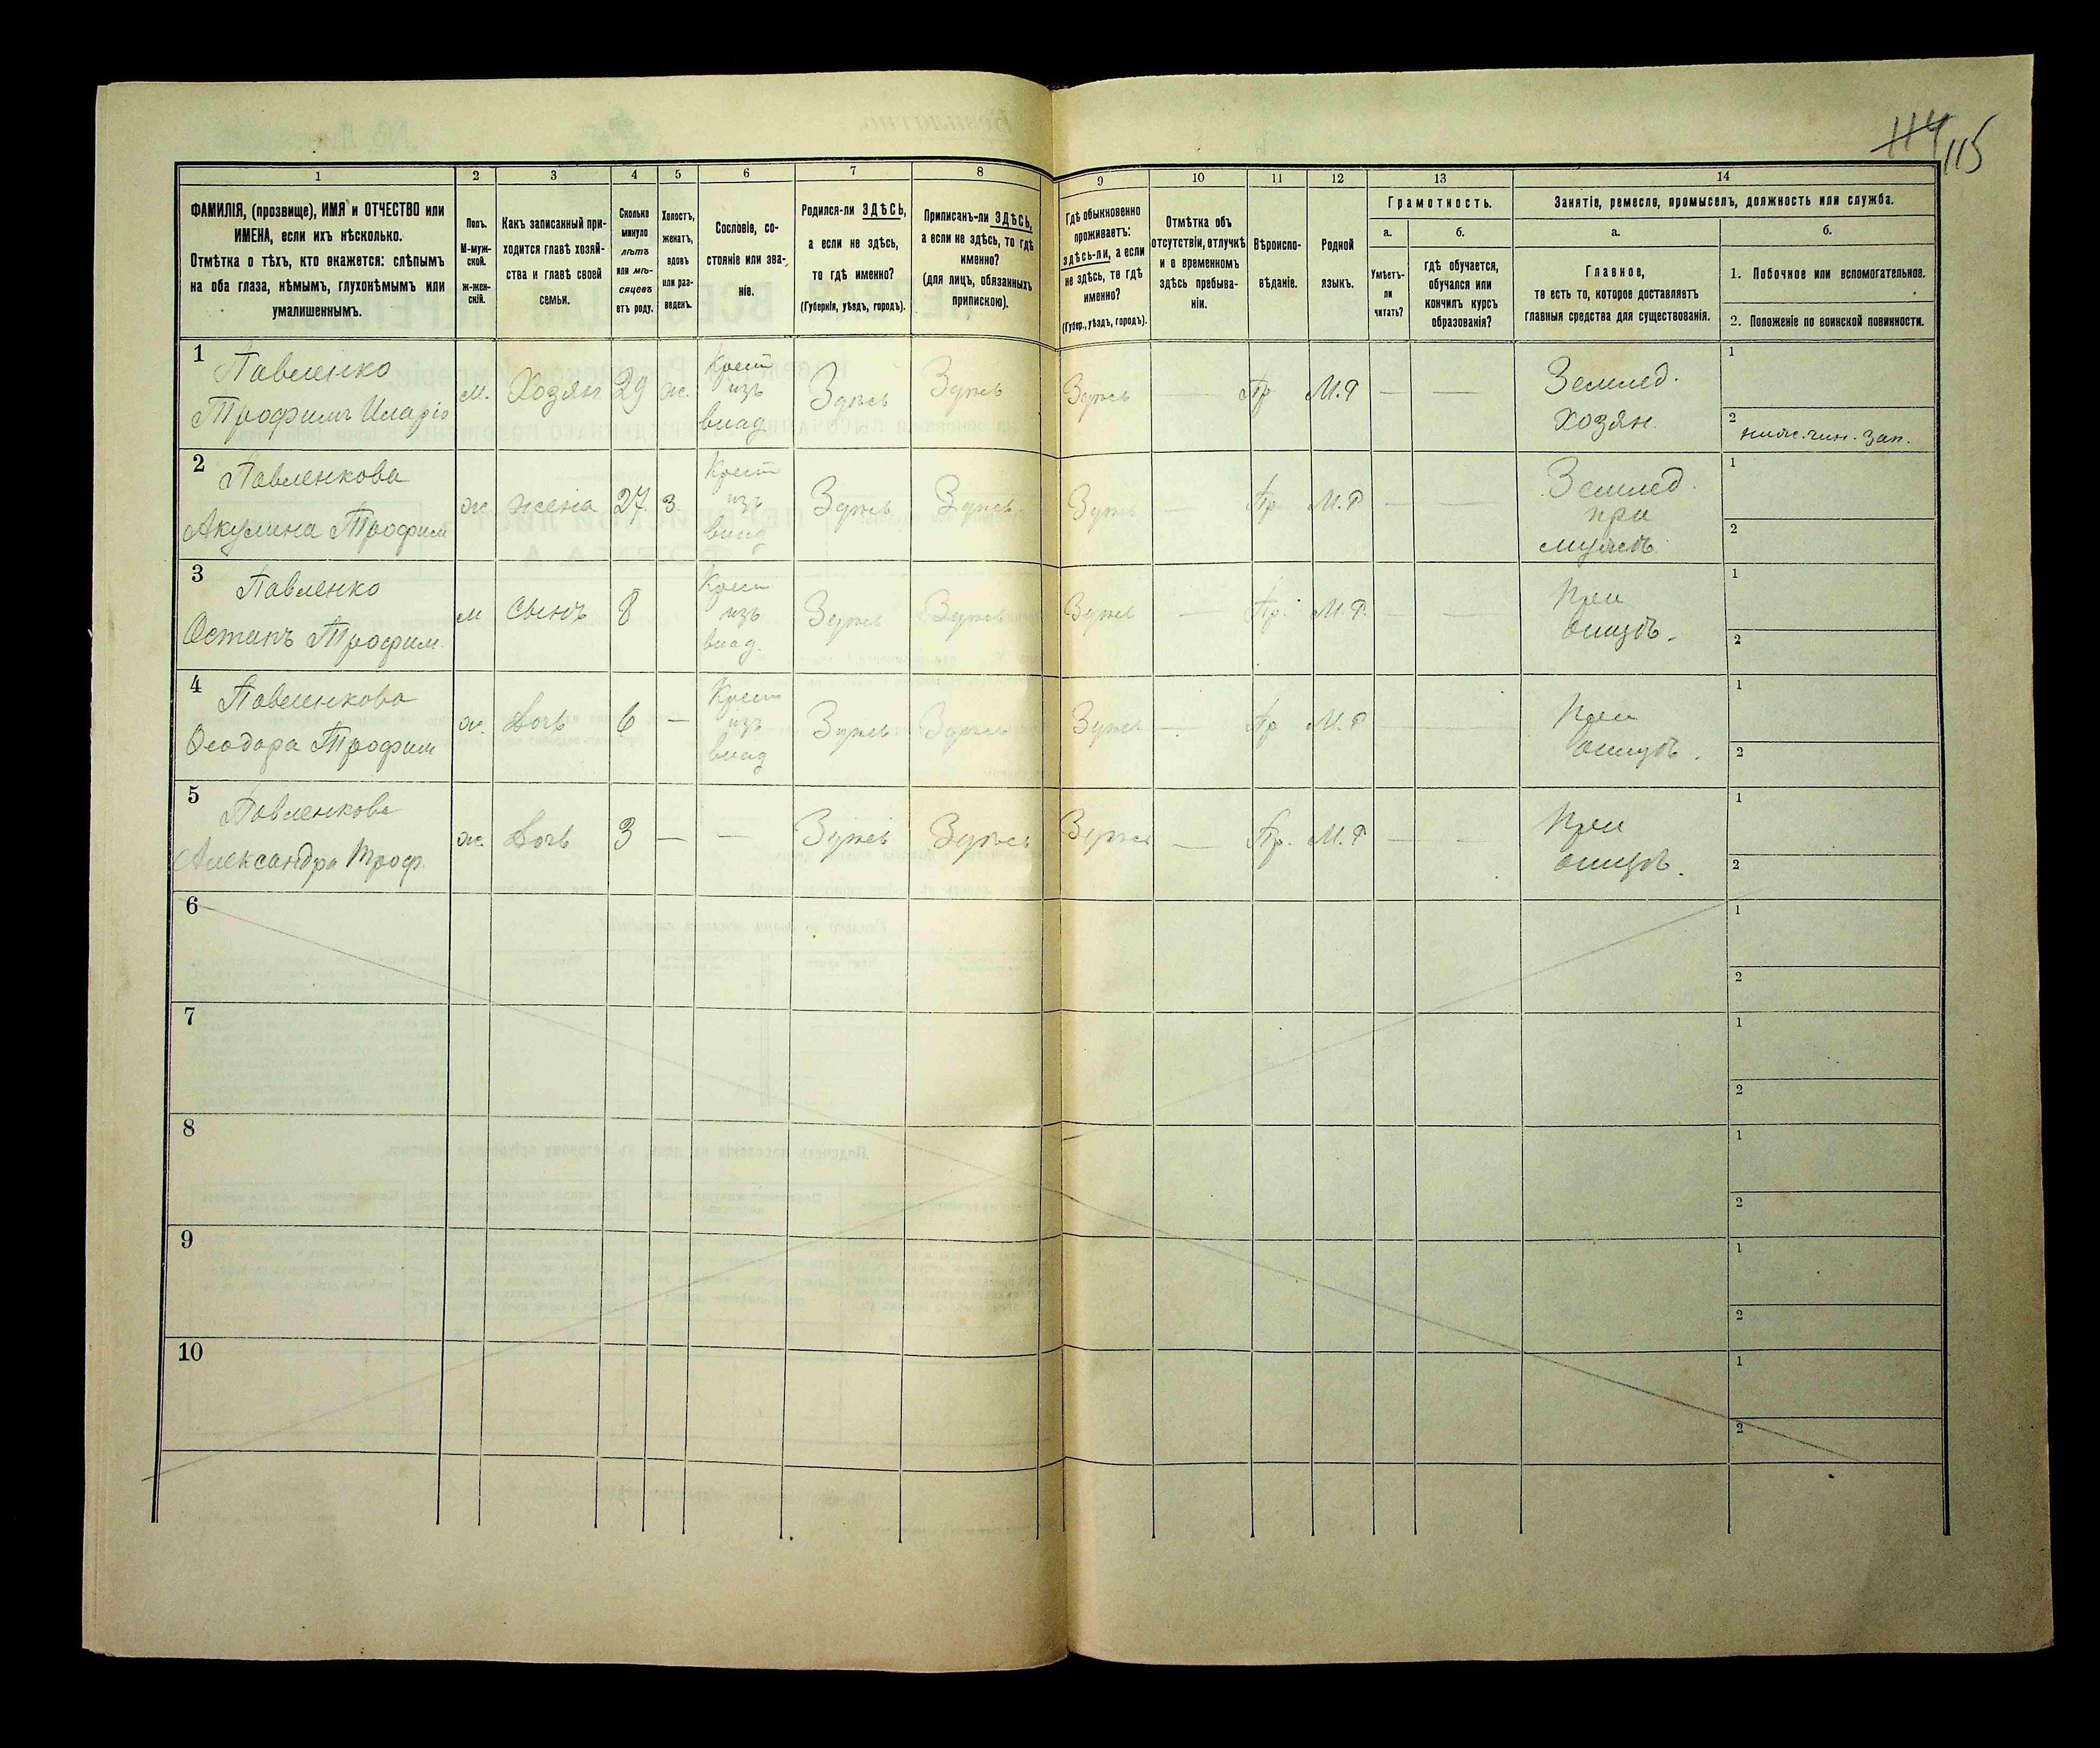 114 115
1 2 3 4 5 6 7 8 9 10 11 12 13 14
ФАМИЛІЯ, (прозвище), ИМЯ и ОТЧЕСТВО или
ИМЕНА, если ихъ нѣсколько.
Отмѣтка о тѣхъ, кто окажется: слѣпымъ
на оба глаза, нѣмымъ, глухонѣмымъ или
умалишеннымъ.
Полъ.
М-муж-
ской.
ж-жен-
скій.
Какъ записанный при-
ходится главѣ хозяй-
ства и главѣ своей
семьи.
Сколько
минуло
лѣтъ
или мѣ-
сяцевъ
отъ роду.
Холостъ,
женатъ,
вдовъ
или раз-
веденъ.
Сословіе, со-
стояніе или зва-
ніе.
Родился-ли ЗДѢСЬ,
а если не здѣсь,
то гдѣ именно?
(Губернія, уѣздъ, городъ).
Приписанъ-ли ЗДѢСЬ,
а если не здѣсь, то гдѣ
именно?
(для лицъ, обязанныхъ
припискою).
Гдѣ обыкновенно
проживаетъ:
здѣсь-ли, а если
не здѣсь, то гдѣ
именно?
(Губер., уѣздъ, городъ).
Отмѣтка объ
отсутствіи, отлучкѣ
и о временномъ
здѣсь пребыва-
ніи.
Вѣроиспо-
вѣданіе.
Родной
языкъ.
Грамотность.
а.
Умѣетъ-
ли
читать?
б.
гдѣ обучается,
обучался или
кончилъ курсъ
образованія?
Занятіе, ремесло, промыселъ, должность или служба.
а.
Главное,
то есть то, которое доставляетъ
главныя средства для существованія.
б.
1. Побочное или вспомогательное.
2. Положеніе по воинской повинности.
1
Павленко
Трофимъ Иларіо
м. Хозян 29 ж.
Крест
изъ
влад.
Здѣсь Здѣсь Здѣсь — Пр М.Р — —
Землед.
Хозян.
1
2 нижн. чин. зап.
2
Павленкова
Акулина Трофим
ж жена 27. з.
Крест
изъ
влад
Здѣсь Здѣсь Здѣсь — Пр М.Р — —
Землед.
при
мужѣ
1
2
3
Павленко
Остапъ Трофим.
м Сынъ 8
Крест
изъ
влад.
Здѣсь Здѣсь Здѣсь — Пр. М.Р. — —
При
отцѣ.
1
2
4
Павленкова
Ѳеодора Трофим
ж. Дочь 6 —
Крест
изъ
влад
Здѣсь Здѣсь Здѣсь — Пр М.Р — —
При
отцѣ.
1
2
5
Павленкова
Александра Троф.
ж. Дочь 3 — — Здѣсь Здѣсь Здѣсь — Пр. М.Р — —
При
отцѣ.
1
2
6
1
2
7
1
2
8
1
2
9
1
2
10
1
2